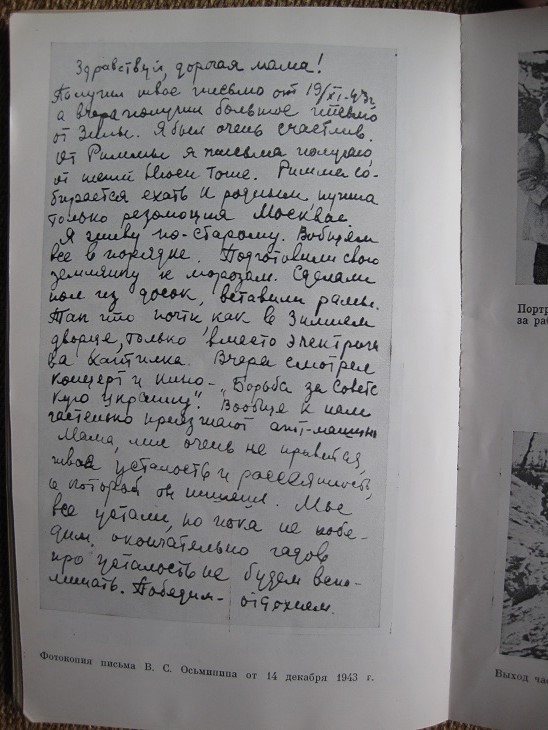 Здравствуй, дорогая мама!
Получил твое письмо от 19/XI-43г
а вчера получил большое письмо
от Зины. Я был очень счастлив.
От Риммы я письма получаю,
от тети Люси тоже. Римма со-
бирается ехать к родным, нужна
только резолюция Москвы.
Я живу по-старому. Вобщем
все в порядке. Подготовили свою
землянку к морозам. Сделали
пол из досок, вставили рамы.
Так что почти как в Зимнем
дворце, только вместо электриче
ва коптилка. Вчера смотрел
концерт и кино- „Борьба за Советс
кую Украину". Вообще к нам
частенько приезжают агит-машины
Мама, мне очень не нравится,
твоя усталость и рассеянность,
о которой он пишет. Мы
все устали, но пока не побе-
дим окончательно гадов
про усталость не будем вспо-
минать. Победим - отдохнем.
Фотокопия письма В. С. Осьминина от 14 декабря 1943 г.
Портр
за раб
Выход час